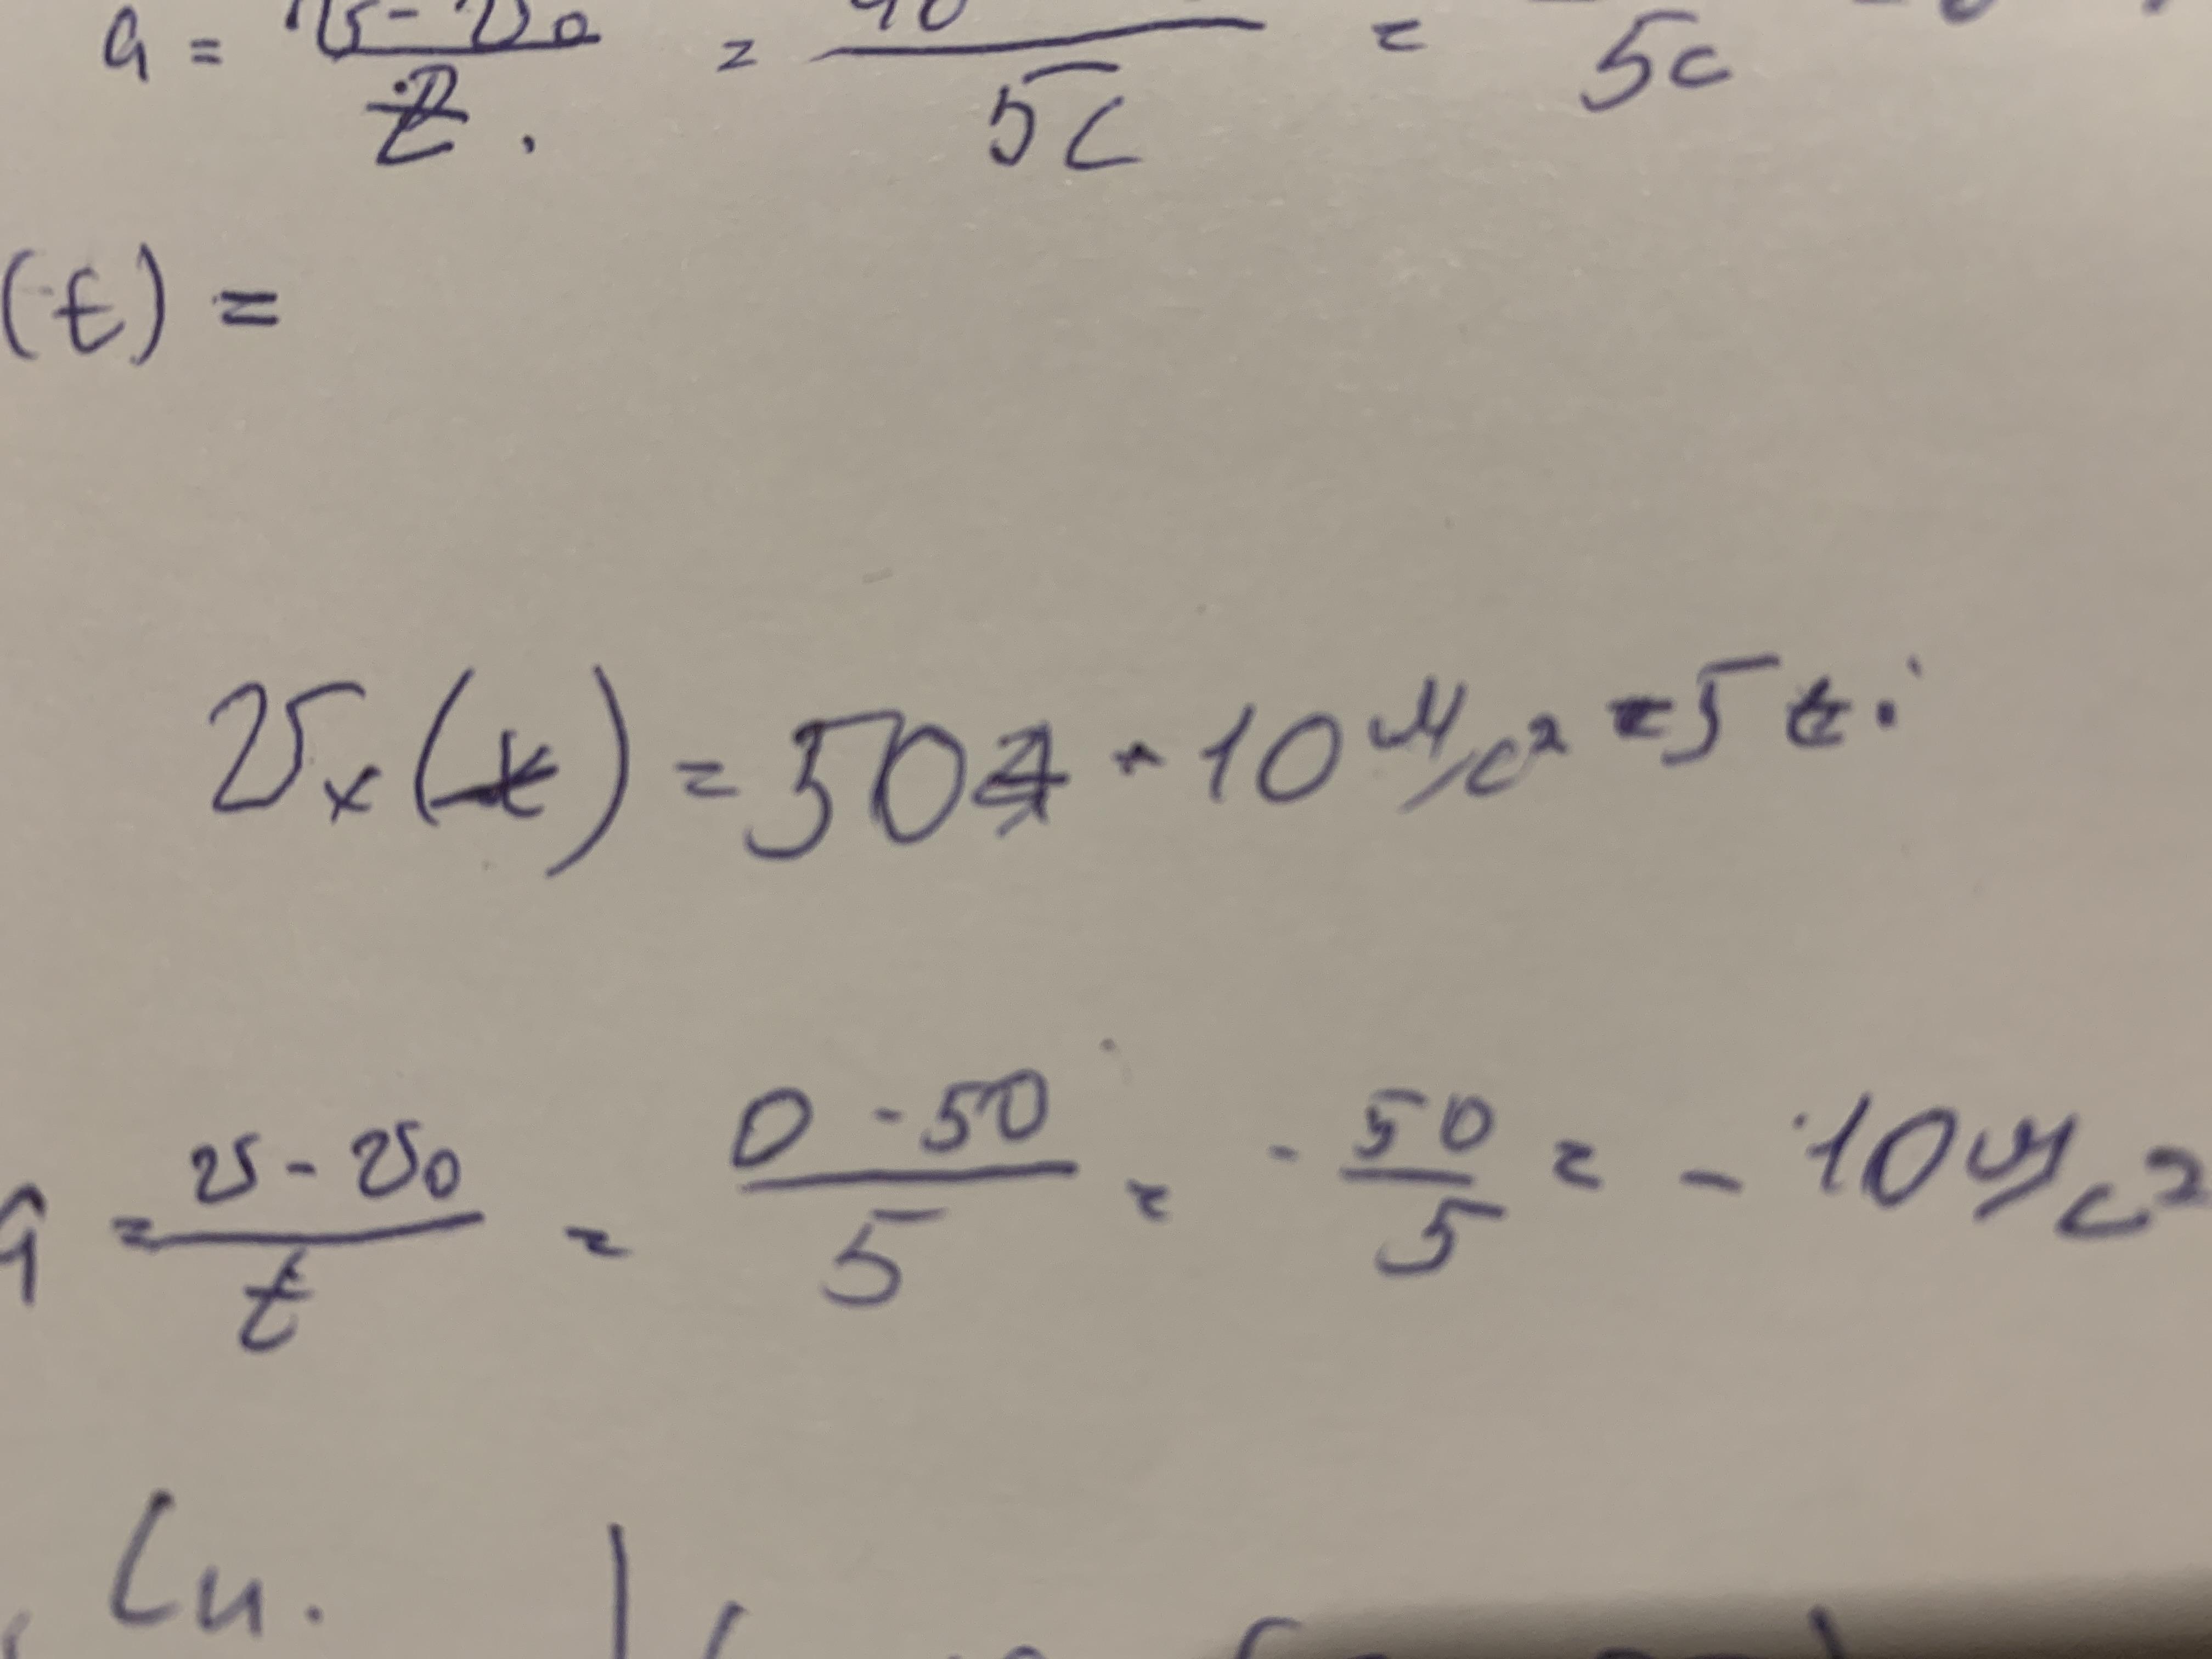 a = v - v₀ / t. = / 5с = / 5с
(t) =
vₓ(t) = 50 - 10 м/с² 5 t.
a = v - v₀ / t = 0 - 50 / 5 = - 50 / 5 = - 10 м/с²